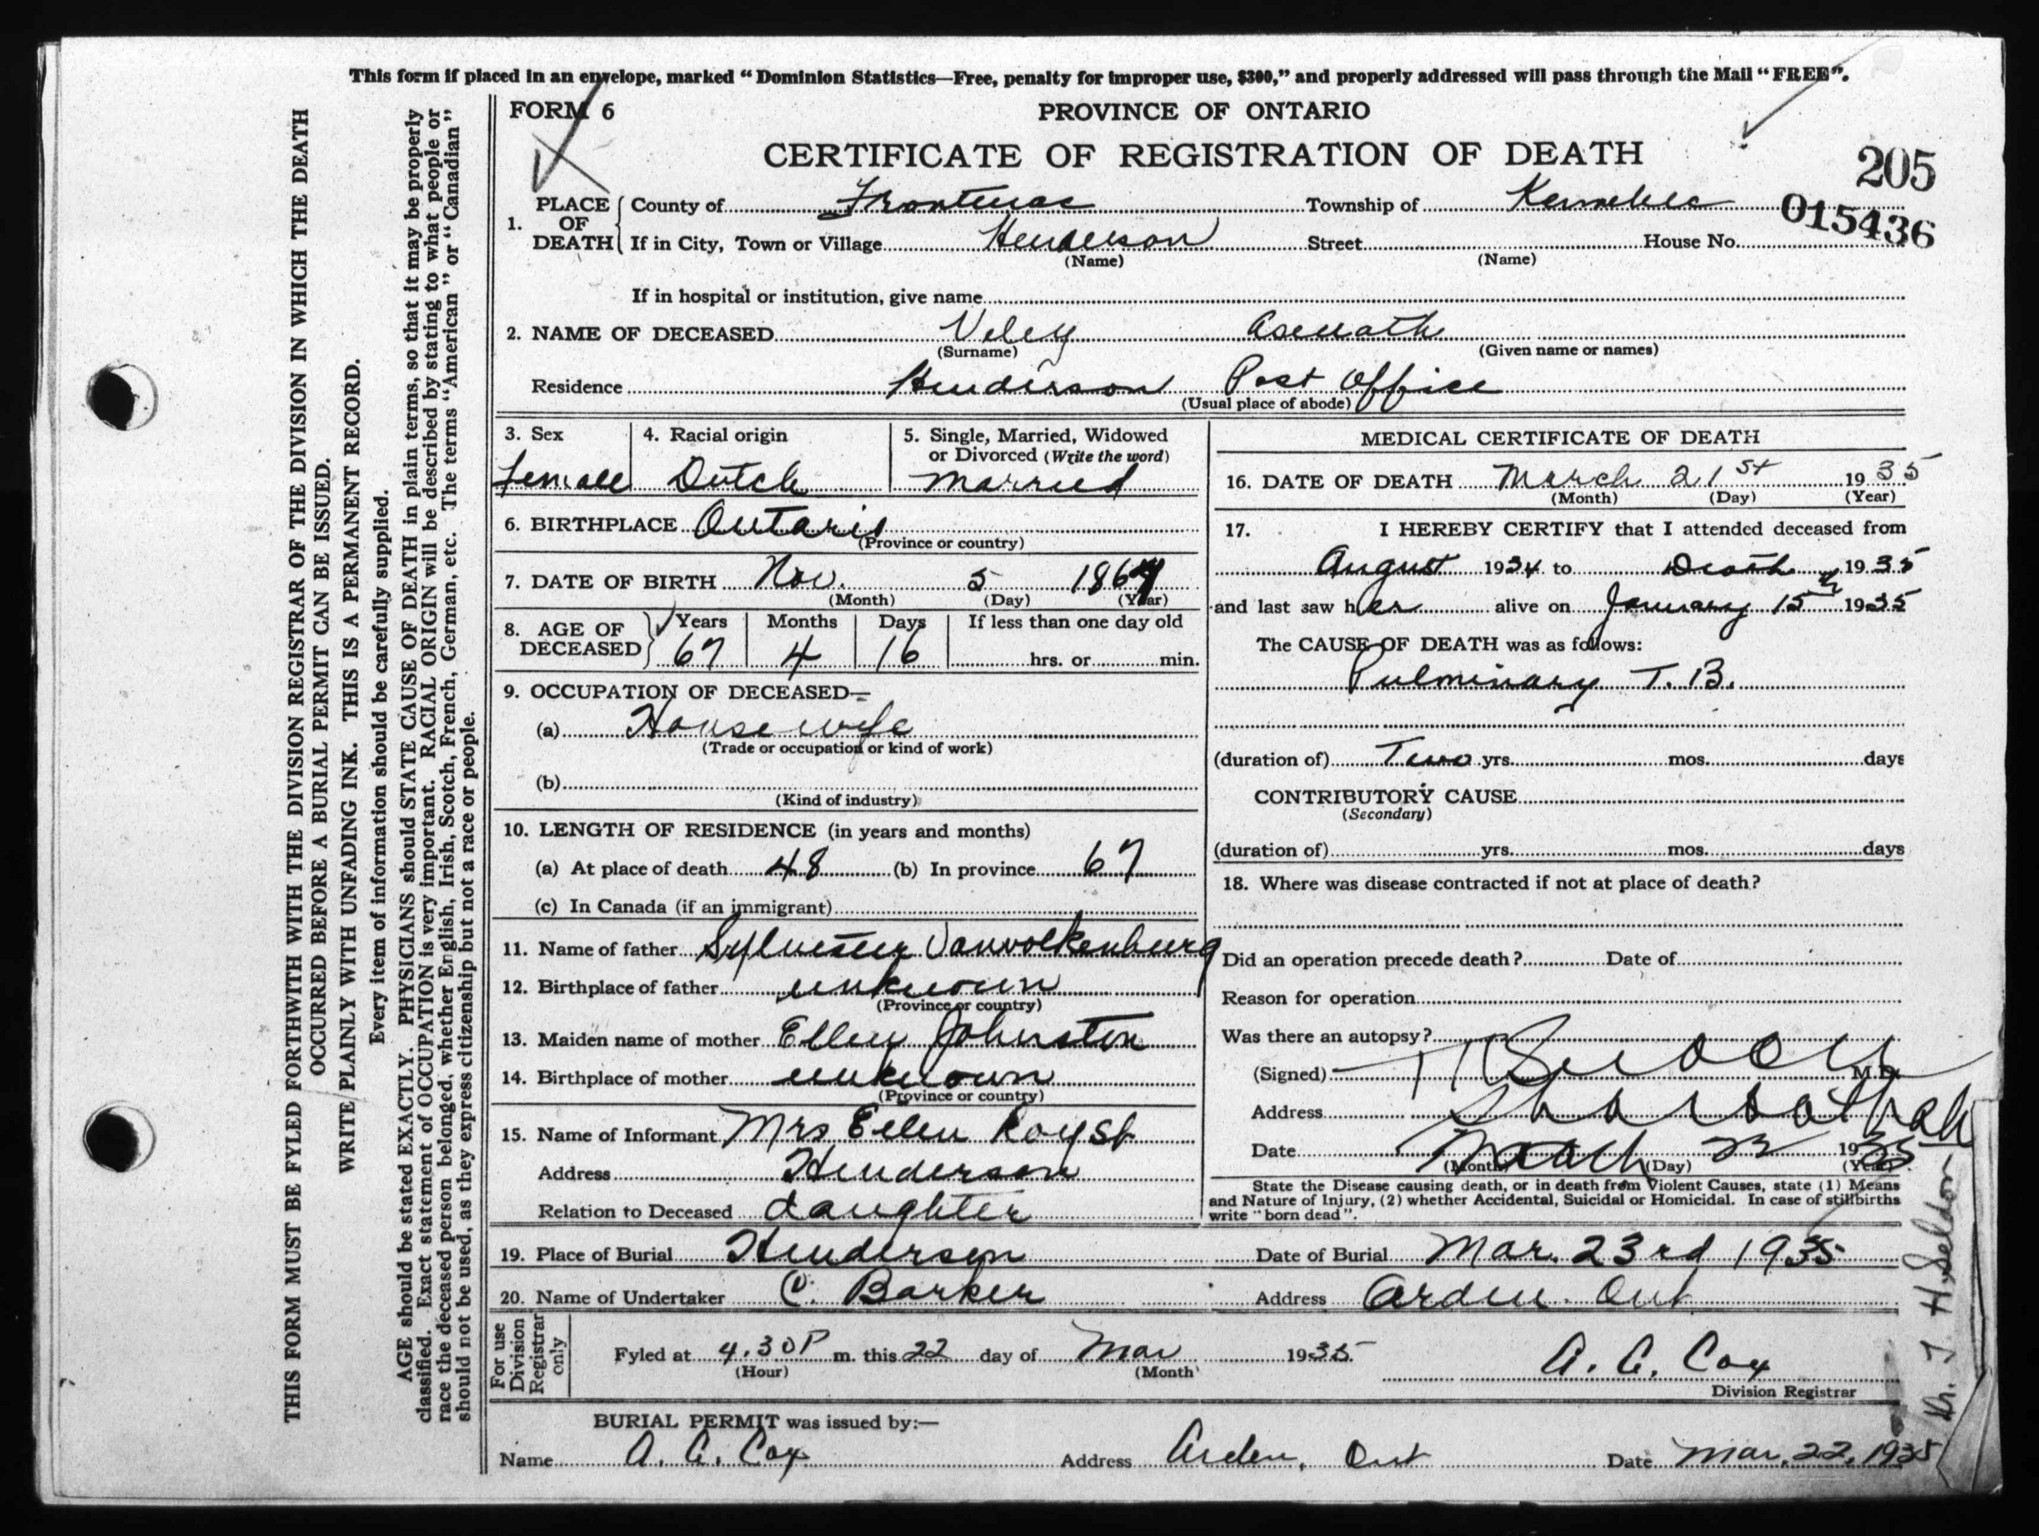 This form if placed in an envelope, marked "Dominion Statistics—Free, penalty for improper use, $300," and properly addressed will pass through the Mail "FREE".
FORM 6
PROVINCE OF ONTARIO
CERTIFICATE OF REGISTRATION OF DEATH
205
015436
1. PLACE OF DEATH
County of Frontenac Township of Kennebec
If in City, Town or Village Henderson Street House No.
(Name) (Name)
If in hospital or institution, give name
2. NAME OF DECEASED Veley Asenath
(Surname) (Given name or names)
Residence Henderson Post Office
(Usual place of abode)
3. Sex Female
4. Racial origin Dutch
5. Single, Married, Widowed
or Divorced (Write the word)
Married
6. BIRTHPLACE Ontario
(Province or country)
7. DATE OF BIRTH Nov. 5 1867
(Month) (Day) (Year)
8. AGE OF DECEASED
Years Months Days If less than one day old
67 4 16 hrs. or min.
9. OCCUPATION OF DECEASED—
(a) Housewife
(Trade or occupation or kind of work)
(b)
(Kind of industry)
10. LENGTH OF RESIDENCE (in years and months)
(a) At place of death 48 (b) In province 67
(c) In Canada (if an immigrant)
11. Name of father Sylvester Vanvolkenburg
12. Birthplace of father unknown
(Province or country)
13. Maiden name of mother Ellen Johnston
14. Birthplace of mother unknown
(Province or country)
15. Name of Informant Mrs Ellen
Address Henderson
Relation to Deceased daughter
MEDICAL CERTIFICATE OF DEATH
16. DATE OF DEATH March 21st 1935
(Month) (Day) (Year)
17. I HEREBY CERTIFY that I attended deceased from
August 1934 to Death 1935
and last saw her alive on January 15th 1935
The CAUSE OF DEATH was as follows:
Pulminary T. B.
(duration of) Two yrs. mos. days
CONTRIBUTORY CAUSE
(Secondary)
(duration of) yrs. mos. days
18. Where was disease contracted if not at place of death?
Did an operation precede death? Date of
Reason for operation
Was there an autopsy?
(Signed) M.D.
Address
Date March 22 1935
(Month) (Day) (Year)
State the Disease causing death, or in death from Violent Causes, state (1) Means
and Nature of Injury, (2) whether Accidental, Suicidal or Homicidal. In case of stillbirths
write "born dead".
19. Place of Burial Henderson Date of Burial Mar. 23rd 1935
20. Name of Undertaker C. Barker Address Arden. Ont
For use
Division
Registrar
only
Fyled at 4.30 P m. this 22 day of Mar 1935 A. G. Cox
(Hour) (Month) Division Registrar
BURIAL PERMIT was issued by:—
Name A. G. Cox Address Arden, Ont Date Mar. 22, 1935
THIS FORM MUST BE FYLED FORTHWITH WITH THE DIVISION REGISTRAR OF THE DIVISION IN WHICH THE DEATH
OCCURRED BEFORE A BURIAL PERMIT CAN BE ISSUED.
WRITE PLAINLY WITH UNFADING INK. THIS IS A PERMANENT RECORD.
Every item of information should be carefully supplied.
AGE should be stated EXACTLY. PHYSICIANS should STATE CAUSE OF DEATH in plain terms, so that it may be properly
classified. Exact statement of OCCUPATION is very important. RACIAL ORIGIN will be described by stating to what people or
race the deceased person belonged, whether English, Irish, Scotch, French, German, etc. The terms "American" or "Canadian"
should not be used, as they express citizenship but not a race or people.
H. Seldon